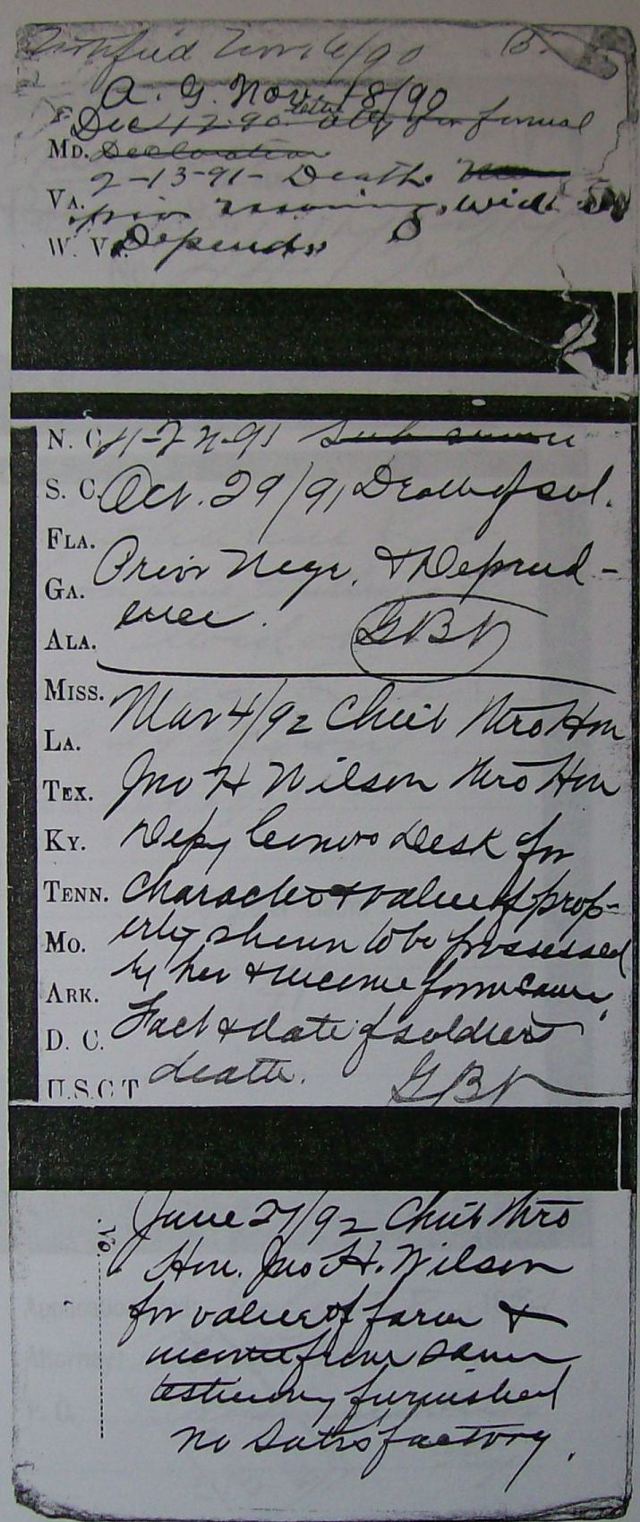 Nov 6/90 B.
A. G. Nov. 18/90
Dec 12-90 atty for formal
MD. Declaration
2-13-91- Death
VA. prior marriage, wid
W. V. Depend.
N. C. 91
S. C. Oct. 29/91 Death of sol.
FLA.
Prior Marge. & Depend-
GA.
ence.
ALA. GBV
MISS.
Mar 4/92 Chut thro Hon
LA.
TEX. Jno H Wilson thro Hon
KY. Depy Comrs Desk for
TENN. Character & value of prop-
MO. erty shown to be possessed
by her & income from same,
ARK.
D. C. Fact & date of soldiers
U.S.C.T death. GBV
No.
June 27/92 Chut thro
Hon. Jno H. Wilson
for value of farm &
income from same
testimony furnished
no satisfactory.